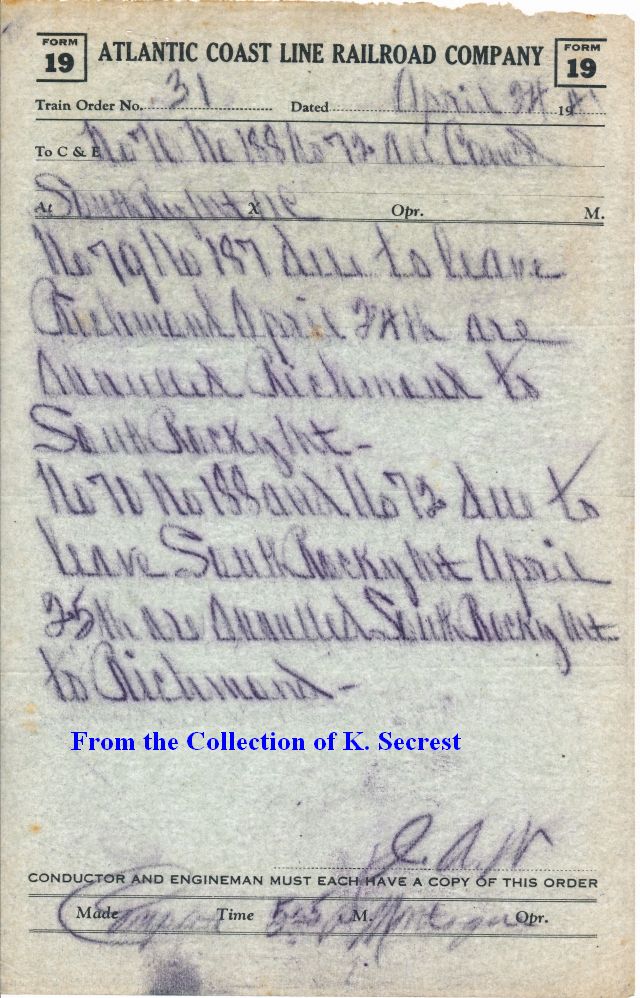 FORM 19 ATLANTIC COAST LINE RAILROAD COMPANY FORM 19
Train Order No. 31 Dated April 24 1941
To C & E No 70 No 188 No 72
At South Rocky Mt NC X Opr. M.
No 79 No 187 due to leave
Richmond April 24th are
annulled Richmond to
South Rocky Mt -
No 70 No 188 and No 72 due to
leave South Rocky Mt April
25th are annulled South Rocky Mt
to Richmond -
From the Collection of K. Secrest
J. A. W
CONDUCTOR AND ENGINEMAN MUST EACH HAVE A COPY OF THIS ORDER
Made Complete Time M. Opr.